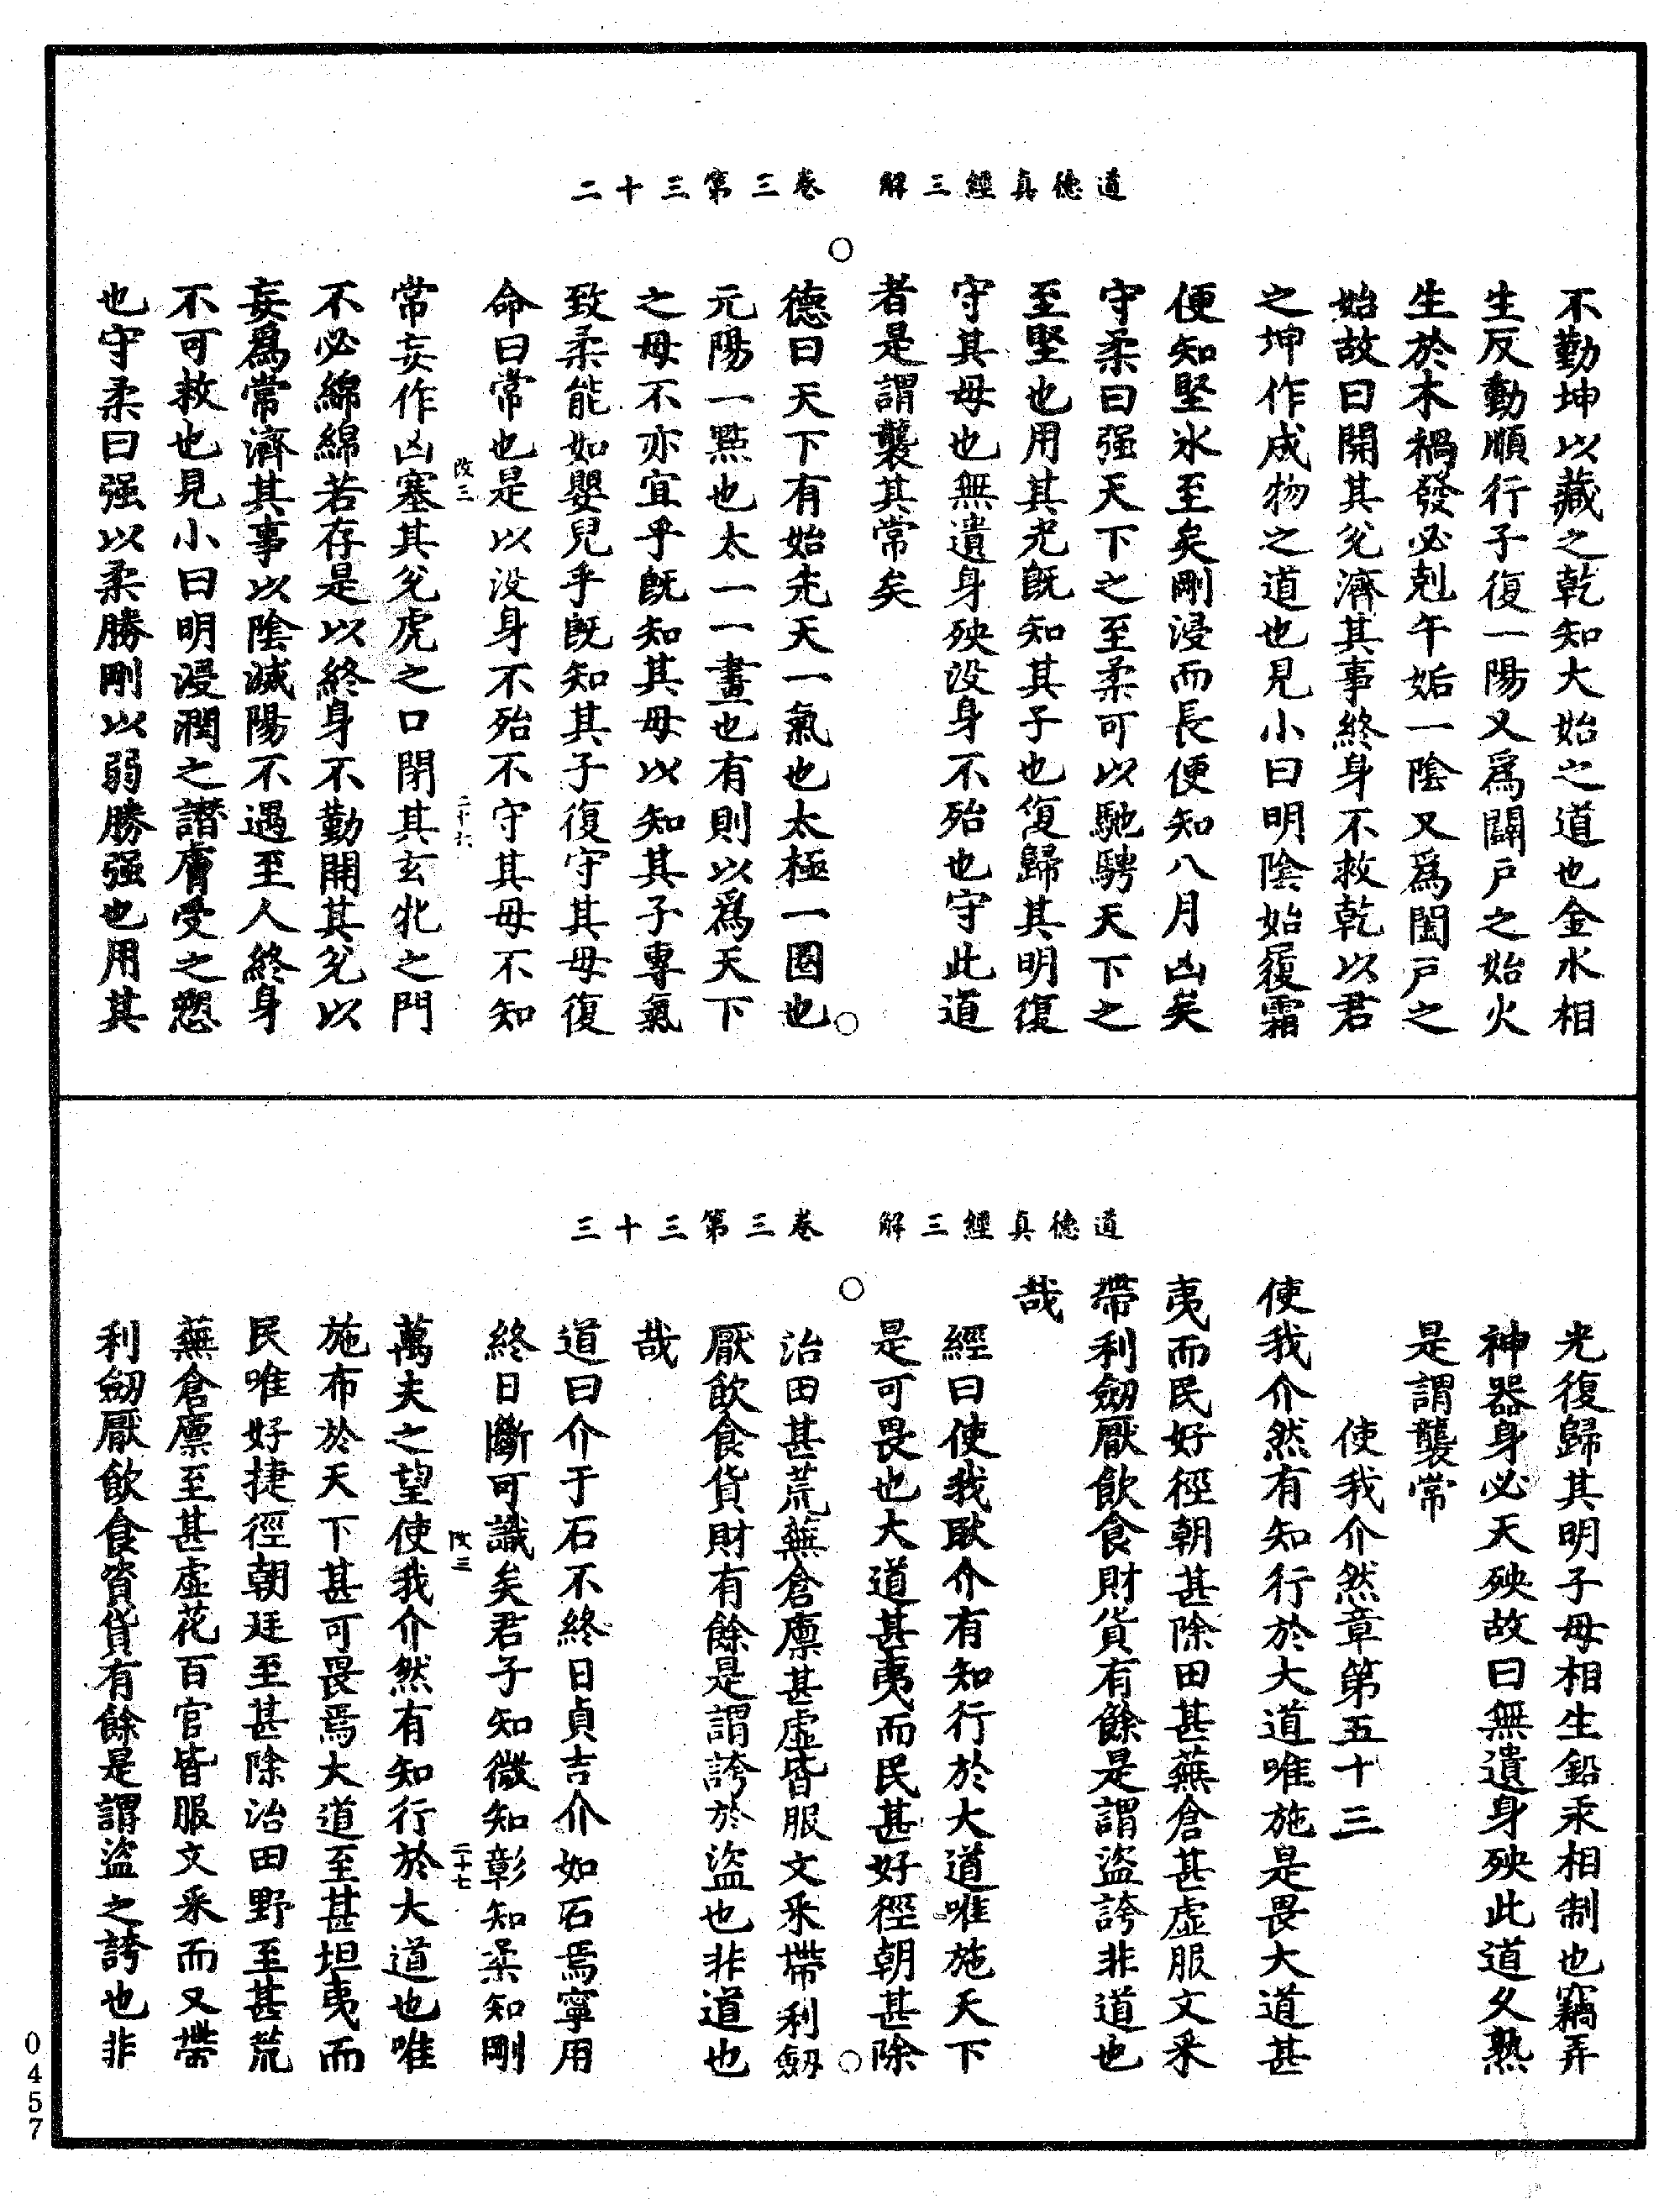 道德真經三解　卷三第三十二
不勤坤以藏之乾知大始之道也金水相
生反動順行子復一陽又爲闢戶之始火
生於木禍發必剋午姤一陰又爲闔戶之
始故曰開其兌濟其事終身不救乾以君
之坤作成物之道也見小曰明陰始履霜
便知堅氷至矣剛浸而長便知八月凶矣
守柔曰强天下之至柔可以馳騁天下之
至堅也用其光旣知其子也復歸其明復
守其母也無遺身殃没身不殆也守此道
者是謂襲其常矣
德曰天下有始先天一氣也太極一圈也
元陽一點也太一一畫也有則以爲天下
之母不亦宜乎旣知其母以知其子專氣
致柔能如嬰兒乎旣知其子復守其母復
命曰常也是以没身不殆不守其母不知
改三　二十六
常妄作凶塞其兌虎之口閉其玄牝之門
不必綿綿若存是以終身不勤開其兌以
妄爲常濟其事以陰滅陽不遇至人終身
不可救也見小曰明浸潤之譖膚受之愬
也守柔曰强以柔勝剛以弱勝强也用其
道德真經三解　卷三第三十三
光復歸其明子母相生鉛汞相制也竊弄
神器身必夭殃故曰無遺身殃此道久熟
是謂襲常
使我介然章第五十三
使我介然有知行於大道唯施是畏大道甚
夷而民好徑朝甚除田甚蕪倉甚虛服文采
帶利劒厭飲食財貨有餘是謂盜誇非道也
哉
經曰使我耿介有知行於大道唯施天下
是可畏也大道甚夷而民甚好徑朝甚除
治田甚荒蕪倉廪甚虛皆服文采帶利劒
厭飲食貨財有餘是謂誇於盜也非道也
哉
道曰介于石不終日貞吉介如石焉寧用
終日斷可識矣君子知微知彰知柔知剛
改三　二十七
萬夫之望使我介然有知行於大道也唯
施布於天下甚可畏焉大道至甚坦夷而
民唯好捷徑朝廷至甚除治田野至甚荒
蕪倉廪至甚虛花百官皆服文采而又帶
利劒厭飲食資貨有餘是謂盜之誇也非
0457